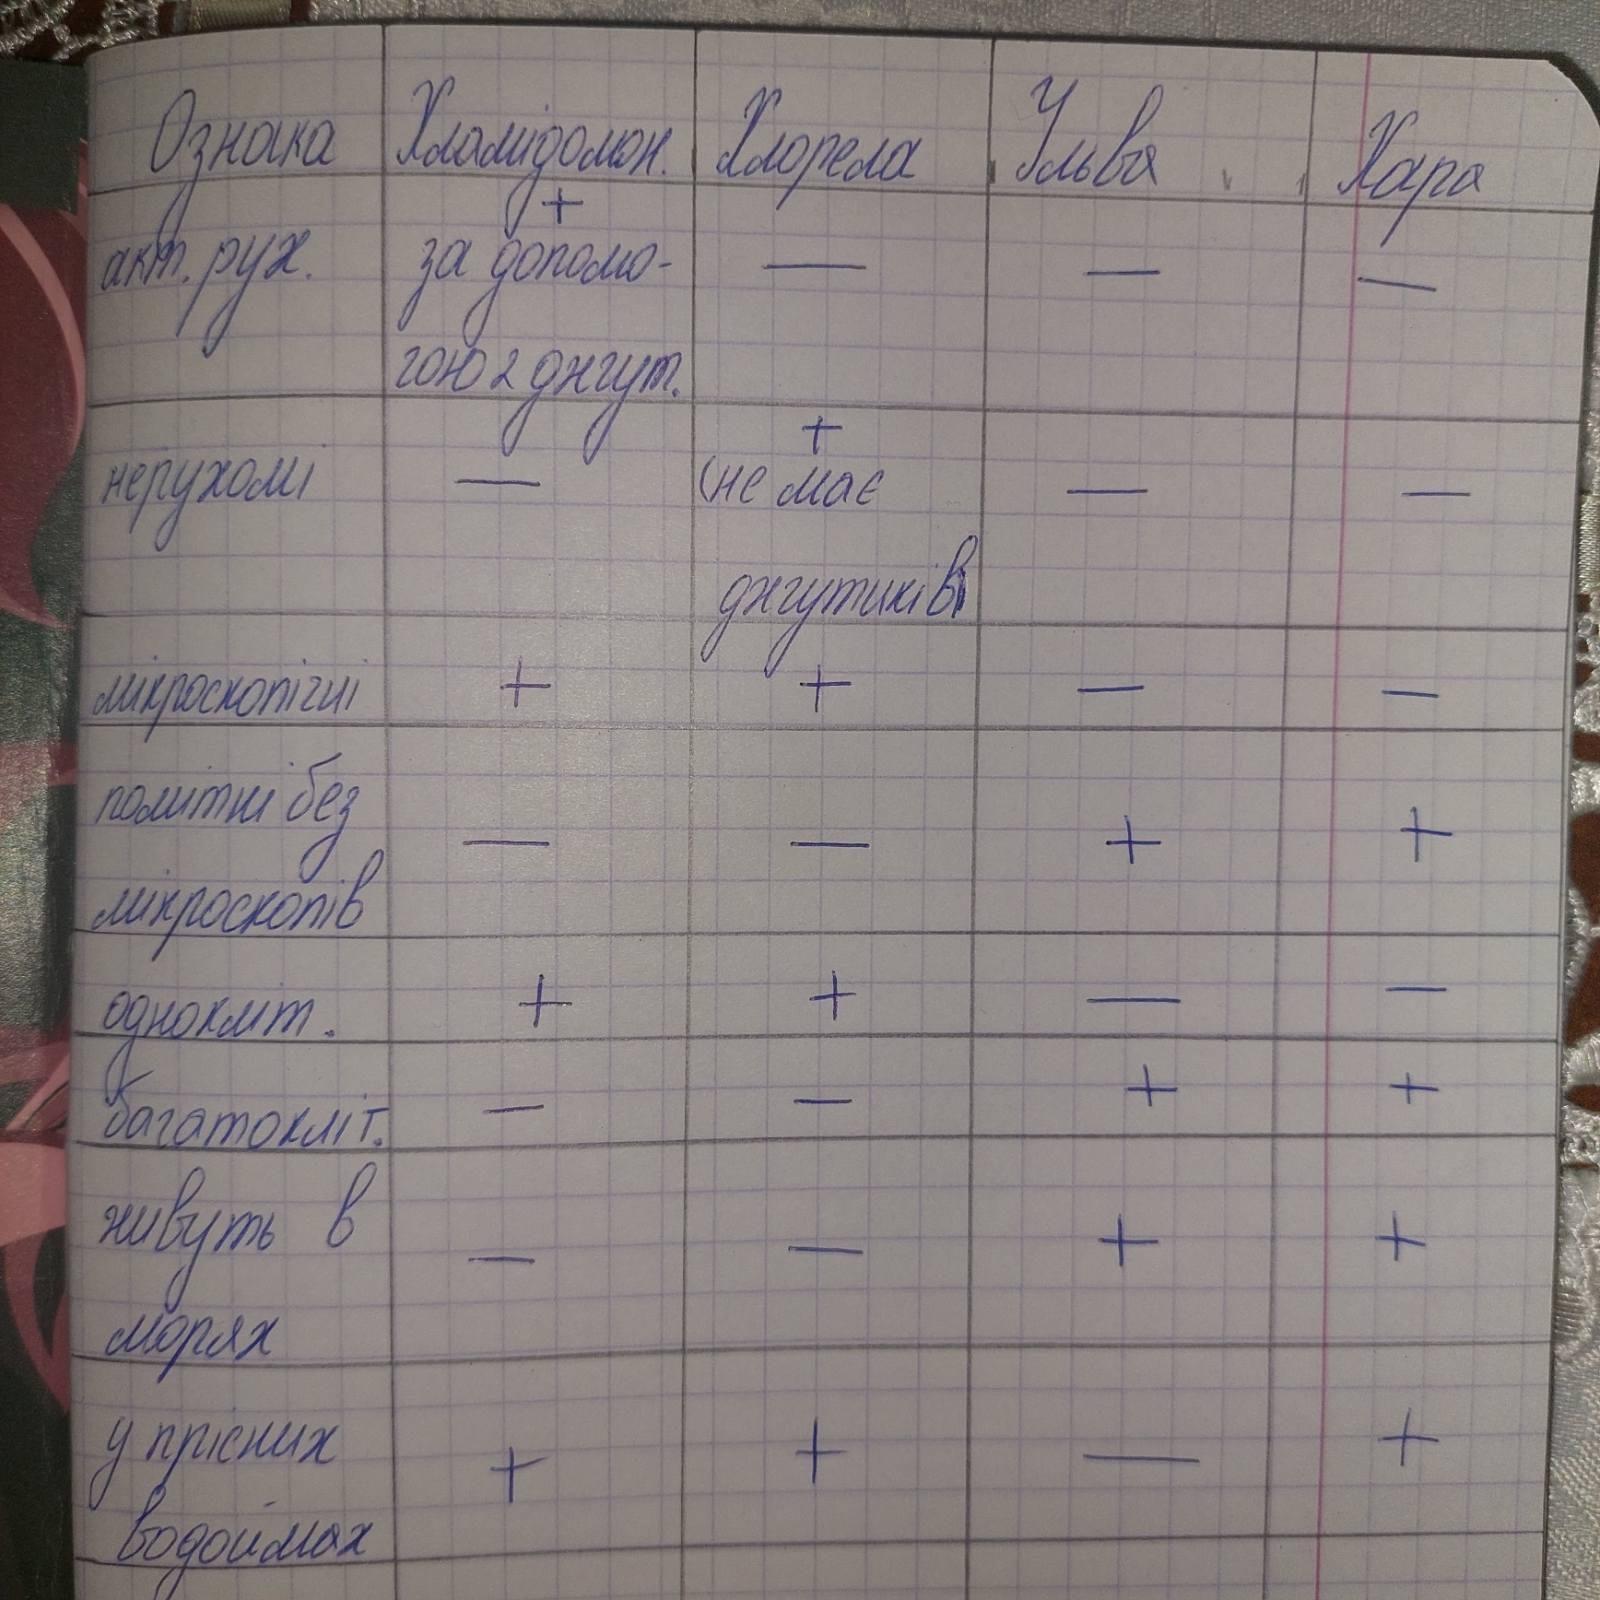 Ознака Хламідомон. Хлорела Ульва Хара
+
акт. рух. за допомо- — — —
гою 2 джгут.
+
нерухомі — (не має — —
джгутиків)
мікроскопічні + + — —
помітні без
— — + +
мікроскопів
одноклiт. + + — —
багатокліт. — — + +
живуть в
— — + +
морях
у прісних
+ + — +
водоймах